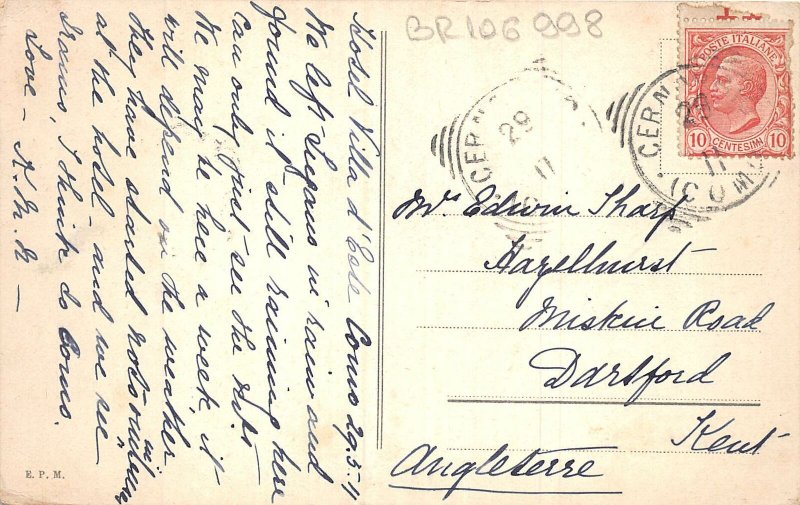 Hotel Villa d'Este Como 29.5.11
We left Lugano in rain and
found it still raining here
can only just see the
We may be here a week, it
will depend on the weather
They have started
at the hotel - and we see
trams, I think to Como.
Love -
E. P. M.
BR106 998
POSTE ITALIANE
10 CENTESIMI 10
CERN
29
11
CERN
29
11
COMO
Mrs Edwin Sharp
Hazelhurst
Miskin Road
Dartford
Kent
Angleterre